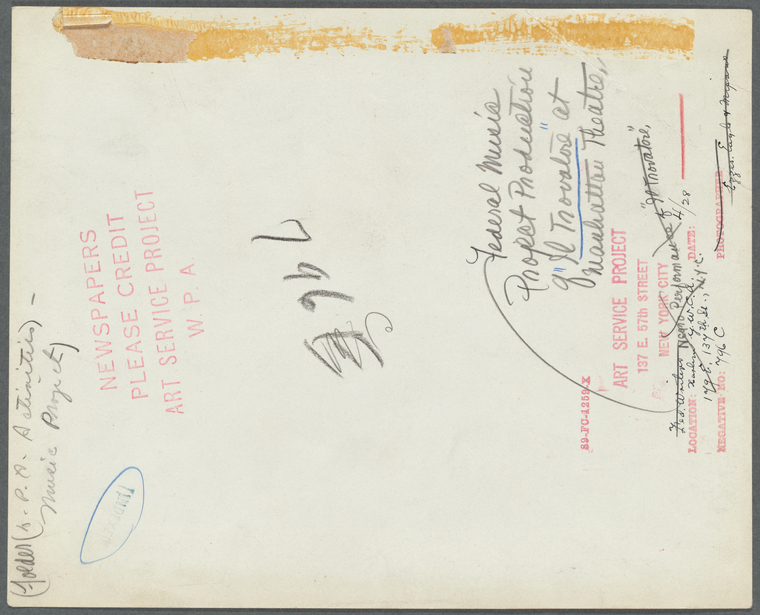 (Folder (W.P.A. Activities) -
Music Project)
NEWSPAPERS
PLEASE CREDIT
ART SERVICE PROJECT
W. P. A.
Federal Music
Project Production
of "Il Trovatore" at
Manhattan Theatre,
89-FC-1259-X
ART SERVICE PROJECT
137 E. 57th STREET
NEW YORK CITY
Negro Performance of "Il Trovatore,"
LOCATION: Harlem Y.W.C.A. DATE: 4/28
179 E. 137th St., N.Y.C.
NEGATIVE NO: 796 C
PHOTOGRAPHER